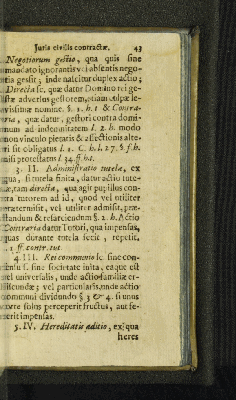 Juris civilis contractæ. 43
Negotiorum gestio, qua quis sine
mandato ignorantis vel absentis nego-
tia gessit; inde nascitur duplex actio;
Directa sc. quæ datur Domino rei ge-
stæ adversus gestorem, etiam culpæ le-
vissimæ nomine. §. 1. h. t & Contra-
ria, quæ datur, gestori contra domi-
num ad indemnitatem l. 2. h. modo
non vinculo pietatis & affectionis alte-
ri sit obligatus l. 1. C. h. l. 27. §. f. h.
nisi protestatus l. 34. ff. h. t.
3. II. Administratio tutelæ, ex
qua, si tutela finita, datur actio tute-
læ, tam directa, qua agit pupillus con-
tra tutorem ad id, quod vel utiliter
prætermisit, vel utiliter admisit, præ-
standum & resarciendum §. 2. h. Actio
Contraria datur Tutori, qua impensas,
quas durante tutela fecit, repetit,
1. ff. contr. tut.
4. III. Rei communio sc. sine con-
sine societate inita, eaque est
vel universalis, unde actio familiæ er-
ciscundæ; vel particularis, unde actio
communi dividundo § 3 & 4. si unus
forte solus perceperit fructus, aut fe-
cerit impensas.
5. IV. Hereditatis aditio, ex qua
heres